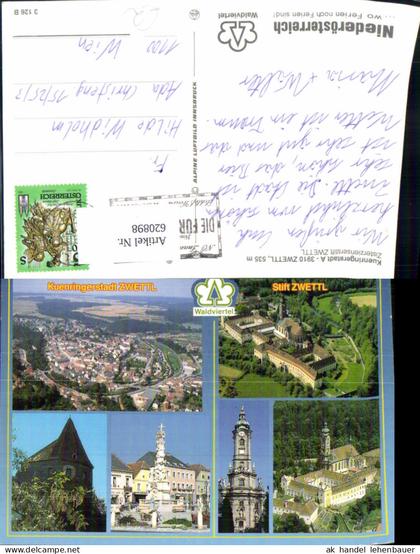 Niederösterreich
... wo Ferien noch Ferien sind!
Waldviertel
Kuenringerstadt A - 3910 ZWETTL, 535 m
Zisterzienserstift ZWETTL
Wir grüßen Euch
herzlichst vom schönen
Zwettl. Die Stadt ist
sehr schön, das Bier
ist sehr gut und das
Wetter ist ein Traum.
Maria + Walter
© ALPINE LUFTBILD INNSBRUCK
3 126 B
Fr.
Hilde Widholm
Ada Christeng 15/25/3
1100 Wien
ÖSTERREICH
DIE FÜR
Artikel Nr.
620898
Kuenringerstadt ZWETTL
Stift ZWETTL
Waldviertel
© ak handel lehenbauer